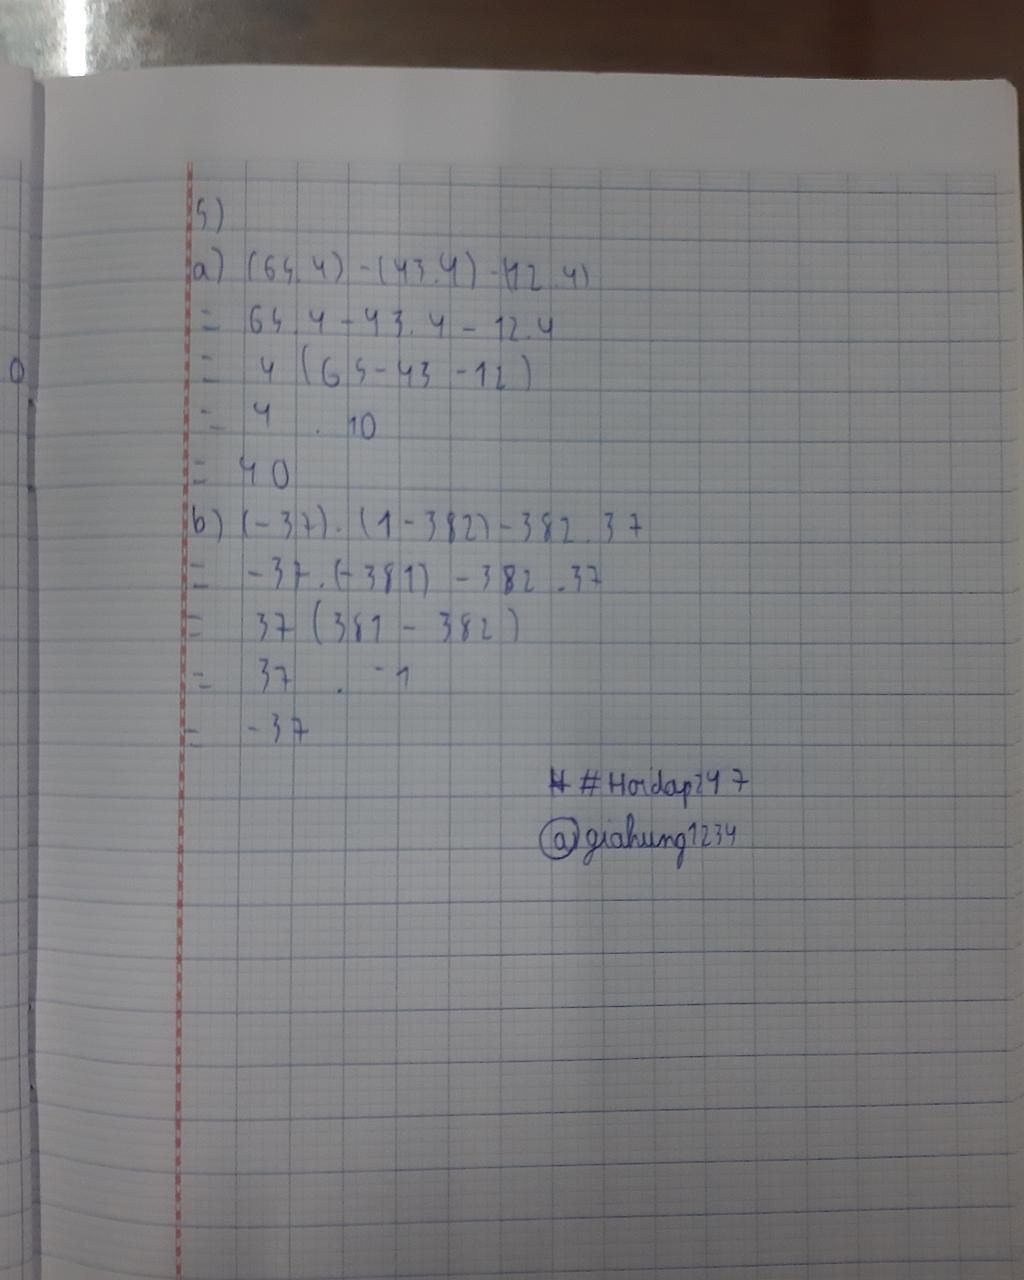 5)
a) (65.4) - (43.4) - (12.4)
= 65.4 - 43.4 - 12.4
= 4 (65 - 43 - 12)
= 4 . 10
= 40
b) (-37) . (1 - 382) - 382 . 37
= -37 . (-381) - 382 . 37
= 37 (381 - 382)
= 37 . -1
= -37
# #Hoidap247
@giahung1234
0